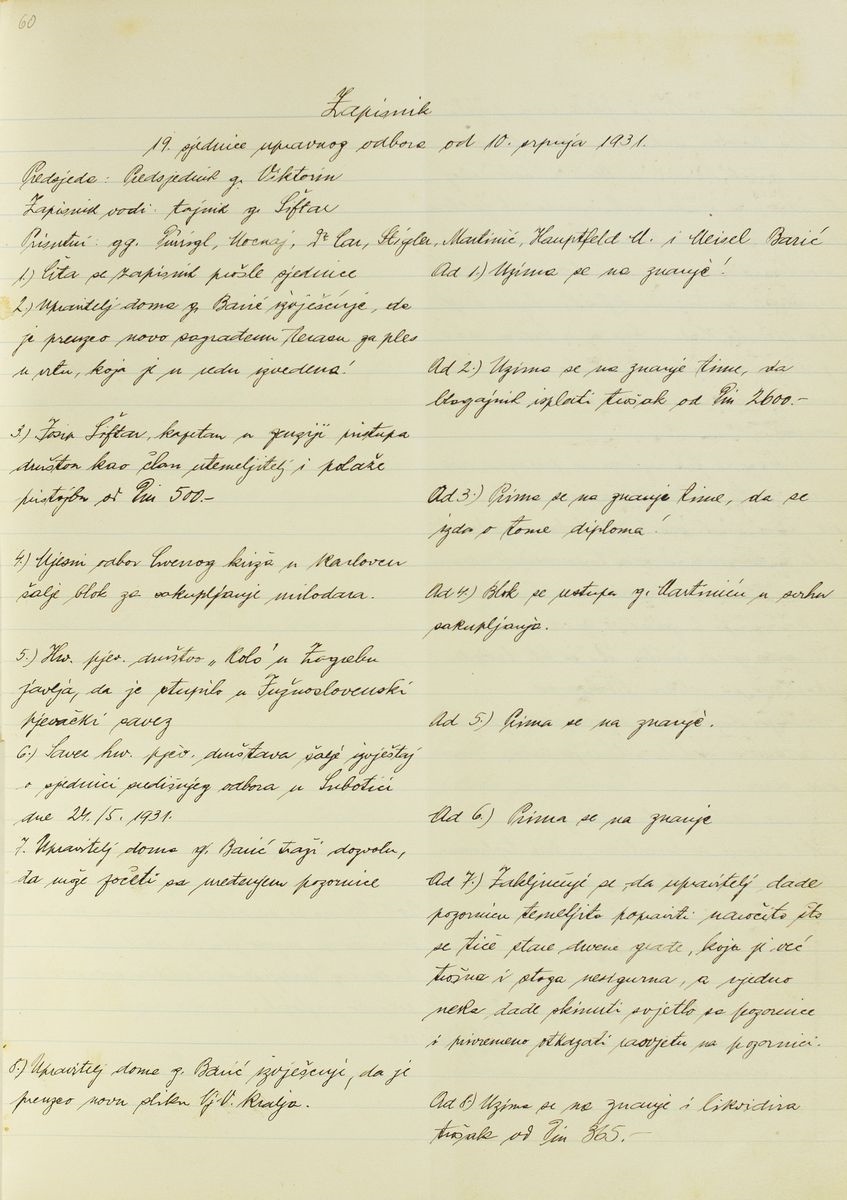 60
Zapisnik
19. sjednice upravnog odbora od 10. srpnja 1931.
Predsjeda: Predsjednik g. Viktorin
Zapisnik vodi: tajnik g. Šiftar
Prisutni: gg. Močnaj, Dr Car, Stigler, Martinić, Hauptfeld M. i Meisel Barić
1.) Čita se zapisnik prošle sjednice
Ad 1.) Uzima se na znanje!
2.) Upravitelj doma g. Barić izvješćuje, da
je preuzeo novo sagrađenu terasu za ples
u vrtu, koja je u redu izvedena!
Ad 2.) Uzima se na znanje time, da
blagajnik isplati trošak od Din 2600.-
3.) Josip Šiftar, kapetan u penziji pristupa
društvu kao član utemeljitelj i polaže
pristojbu od Din 500.-
Ad 3.) Prima se na znanje time, da se
izda o tome diploma!
4.) Mjesni odbor Crvenog križa u Karlovcu
šalje blok za sakupljanje milodara.
Ad 4.) Blok se ustupa g. Martiniću u svrhu
sakupljanja.
5.) Hrv. pjev. društvo „Kolo" u Zagrebu
javlja, da je stupilo u Južnoslovenski
pjevački savez
Ad 5.) Prima se na znanje.
6.) Savez hrv. pjev. društava šalje izvještaj
o sjednici središnjeg odbora u Subotici
dne 24./5. 1931.
Ad 6.) Prima se na znanje
7. Upravitelj doma g. Barić traži dozvolu,
da može početi sa uređenjem pozornice
Ad 7.) Zaključuje se da upravitelj dade
pozornicu temeljito popraviti naročito što
se tiče stare drvene građe, koja je već
trošna i stoga nesigurna, a ujedno
neka dade skinuti svjetlo sa pozornice
i privremeno otkazati rasvjetu na pozornici.
8.) Upravitelj doma g. Barić izvješćuje, da je
preuzeo novu sliku Nj. V. Kralja.
Ad 8.) Uzima se na znanje i likvidira
trošak od Din 365.-